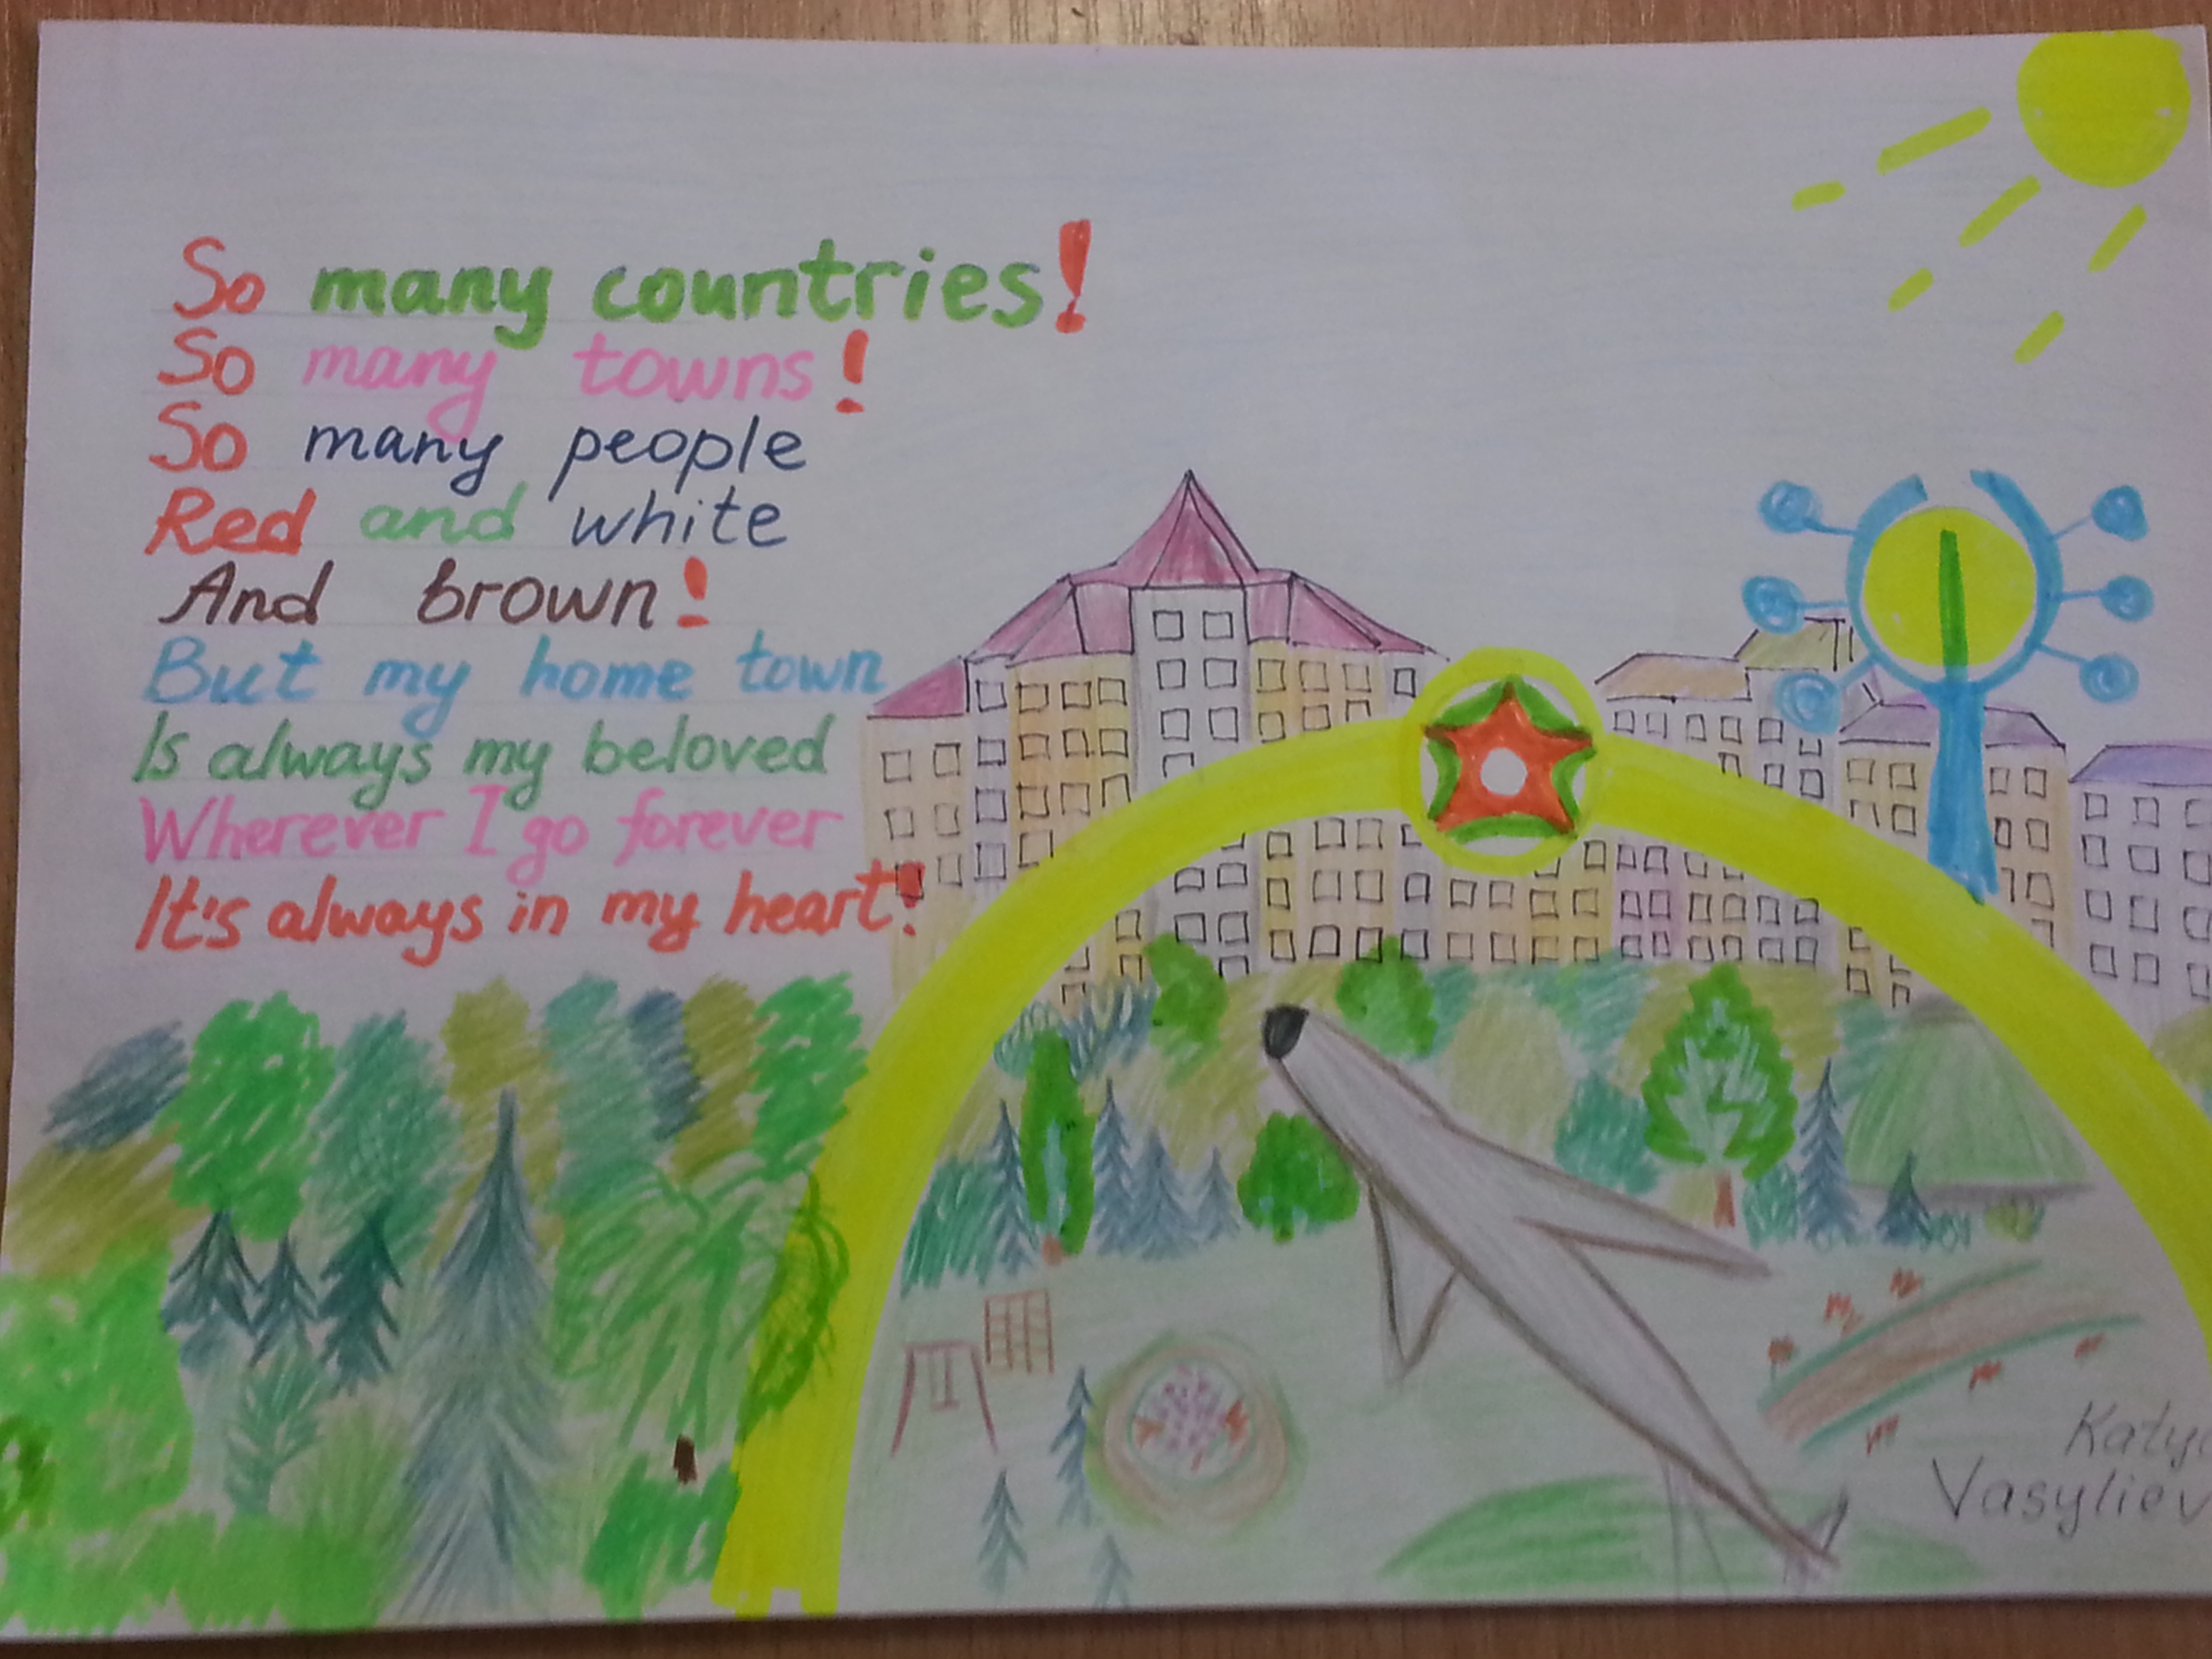 So many countries!
So many towns!
So many people
Red and white
And brown!
But my home town
Is always my beloved
Wherever I go forever
It's always in my heart!
Katy
Vasyliev